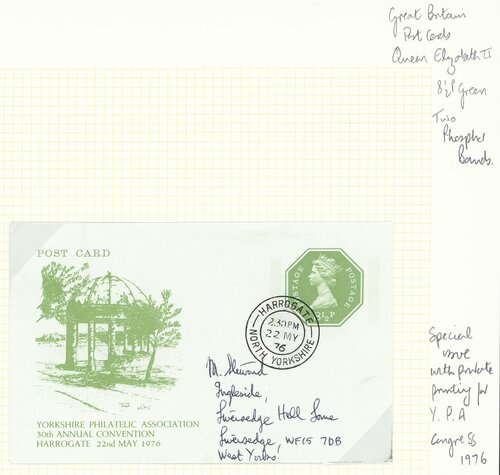 Great Britain
Post Cards
Queen Elizabeth II
8½P Green
Two
Phosphor
Bands.
POST CARD
POSTAGE POSTAGE
8½P
HARROGATE
2.30PM
22 MY
76
NORTH YORKSHIRE
M. Steward
Ingleside,
Liversedge Hall Lane
Liversedge, WF15 7DB
West Yorks.
YORKSHIRE PHILATELIC ASSOCIATION
30th ANNUAL CONVENTION
HARROGATE 22nd MAY 1976
Special
issue
with private
printing for
Y.P.A
Congress
1976